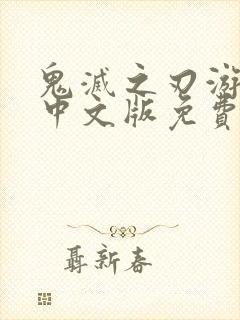 鬼滅之刃游
中文版免費
聶新春